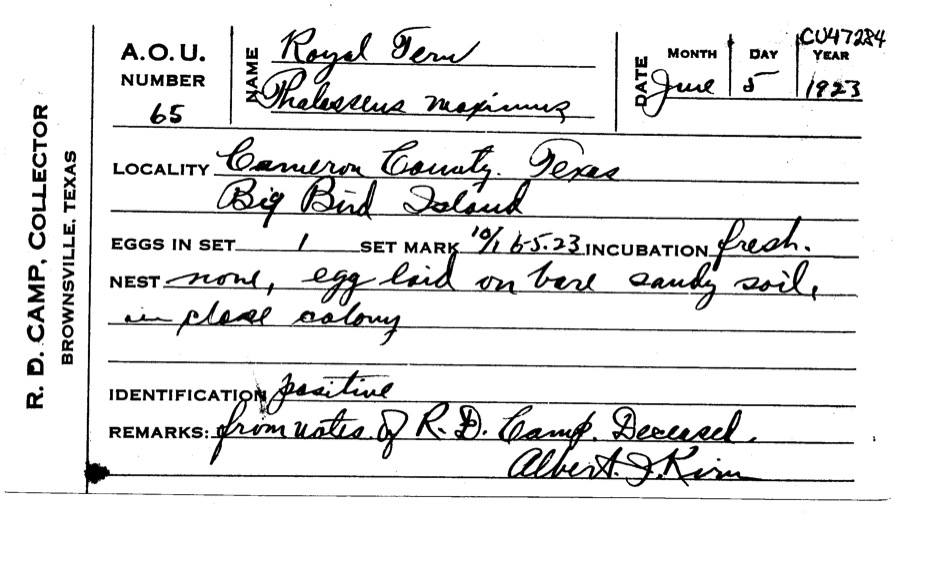 CU47284
A.O.U. NUMBER 65
NAME Royal Tern
Thalasseus maximus
DATE MONTH June DAY 5 YEAR 1923
R. D. CAMP, COLLECTOR
BROWNSVILLE, TEXAS
LOCALITY Cameron County. Texas
Big Bird Island
EGGS IN SET 1 SET MARK 10/1 6-5.23 INCUBATION fresh.
NEST none, egg laid on bare sandy soil,
in close colony
IDENTIFICATION positive
REMARKS: from notes of R. D. Camp. Deceased.
Albert J. Kirn